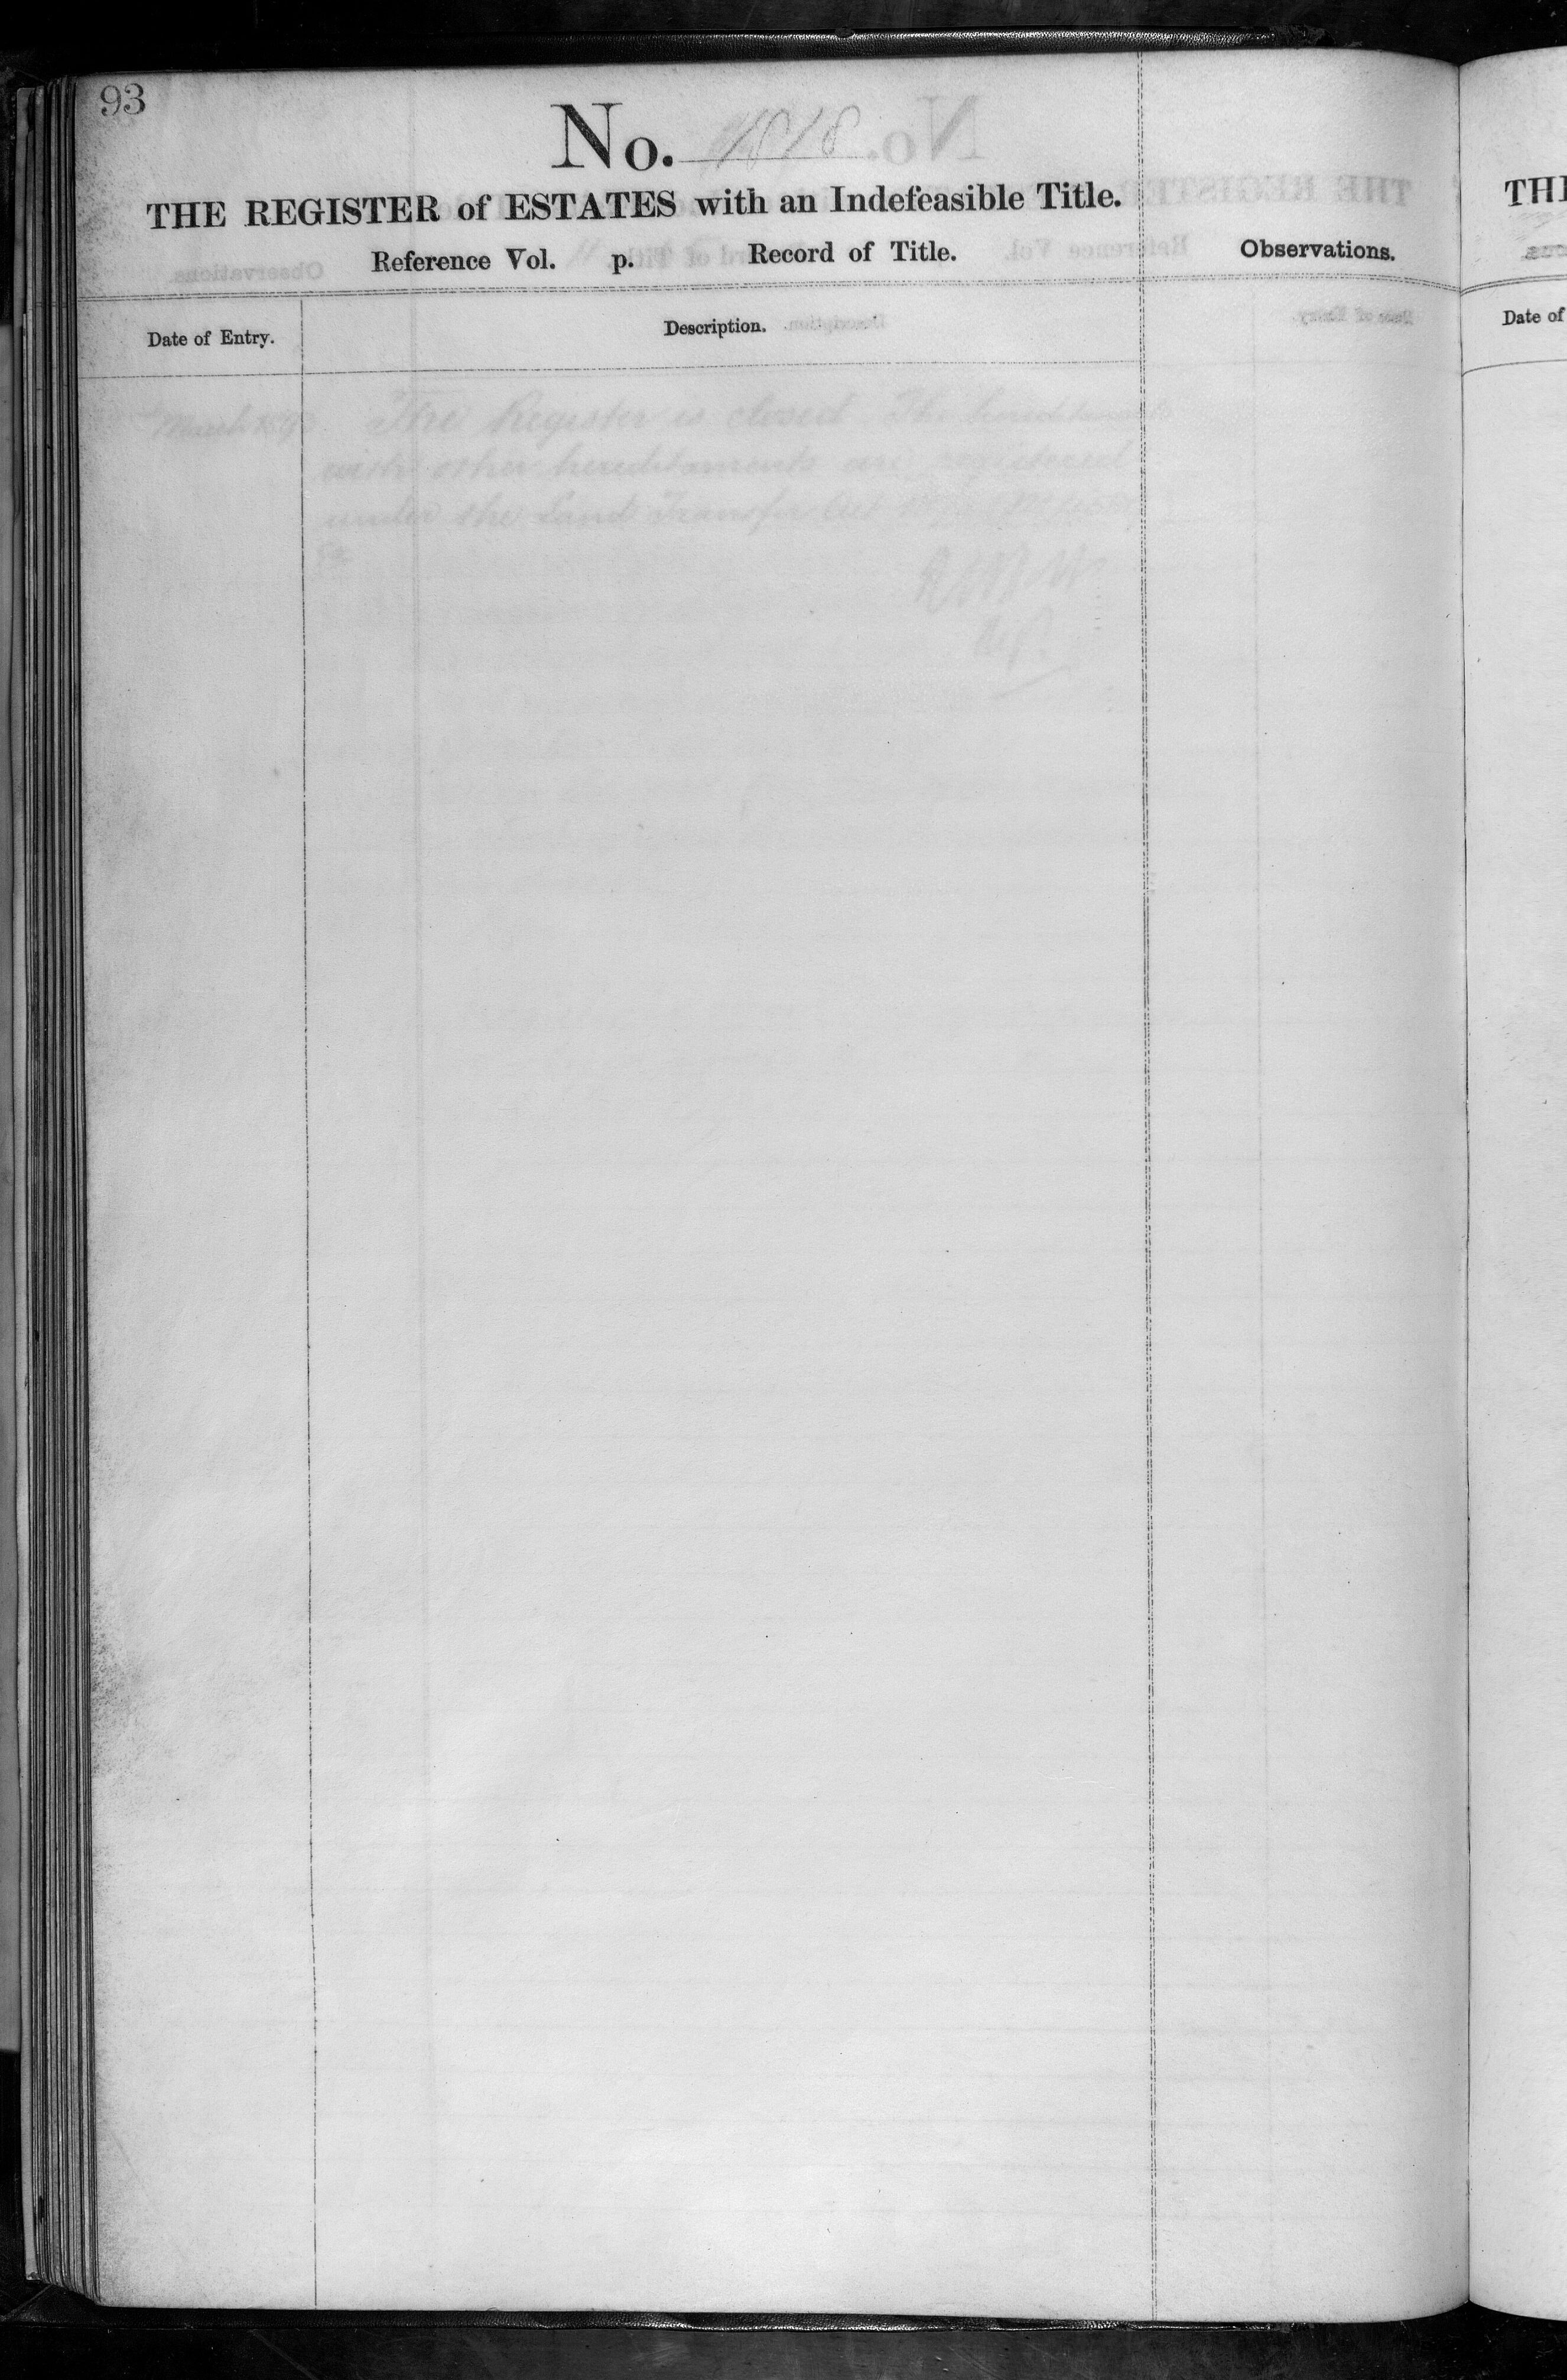 93
No. 1818
THE REGISTER of ESTATES with an Indefeasible Title.
Reference Vol. p. Record of Title.
Observations.
Date of Entry.
Description.
March 1893
The Register is closed The hereditaments
with other hereditaments are registered
under the Land Transfer Act
THE
Date of